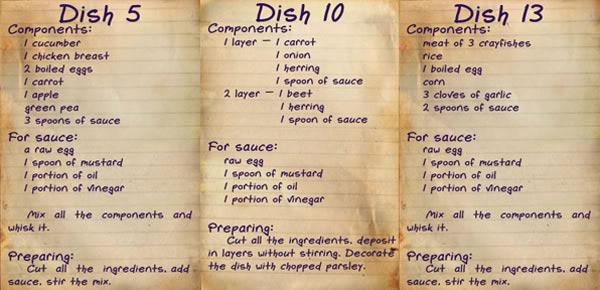 Dish 5
Components:
1 cucumber
1 chicken breast
2 boiled eggs
1 carrot
1 apple
green pea
3 spoons of sauce
For sauce:
a raw egg
1 spoon of mustard
1 portion of oil
1 portion of vinegar
Mix all the components and
whisk it.
Preparing:
Cut all the ingredients. add
sauce. stir the mix.
Dish 10
Components:
1 layer – 1 carrot
1 onion
1 herring
1 spoon of sauce
2 layer – 1 beet
1 herring
1 spoon of sauce
For sauce:
raw egg
1 spoon of mustard
1 portion of oil
1 portion of vinegar
Preparing:
Cut all the ingredients. deposit
in layers without stirring. Decorate
the dish with chopped parsley.
Dish 13
Components:
meat of 3 crayfishes
rice
1 boiled egg
corn
3 cloves of garlic
2 spoons of sauce
For sauce:
raw egg
1 spoon of mustard
1 portion of oil
1 portion of vinegar
Mix all the components and
whisk it.
Preparing:
Cut all the ingredients. add
sauce. stir the mix.